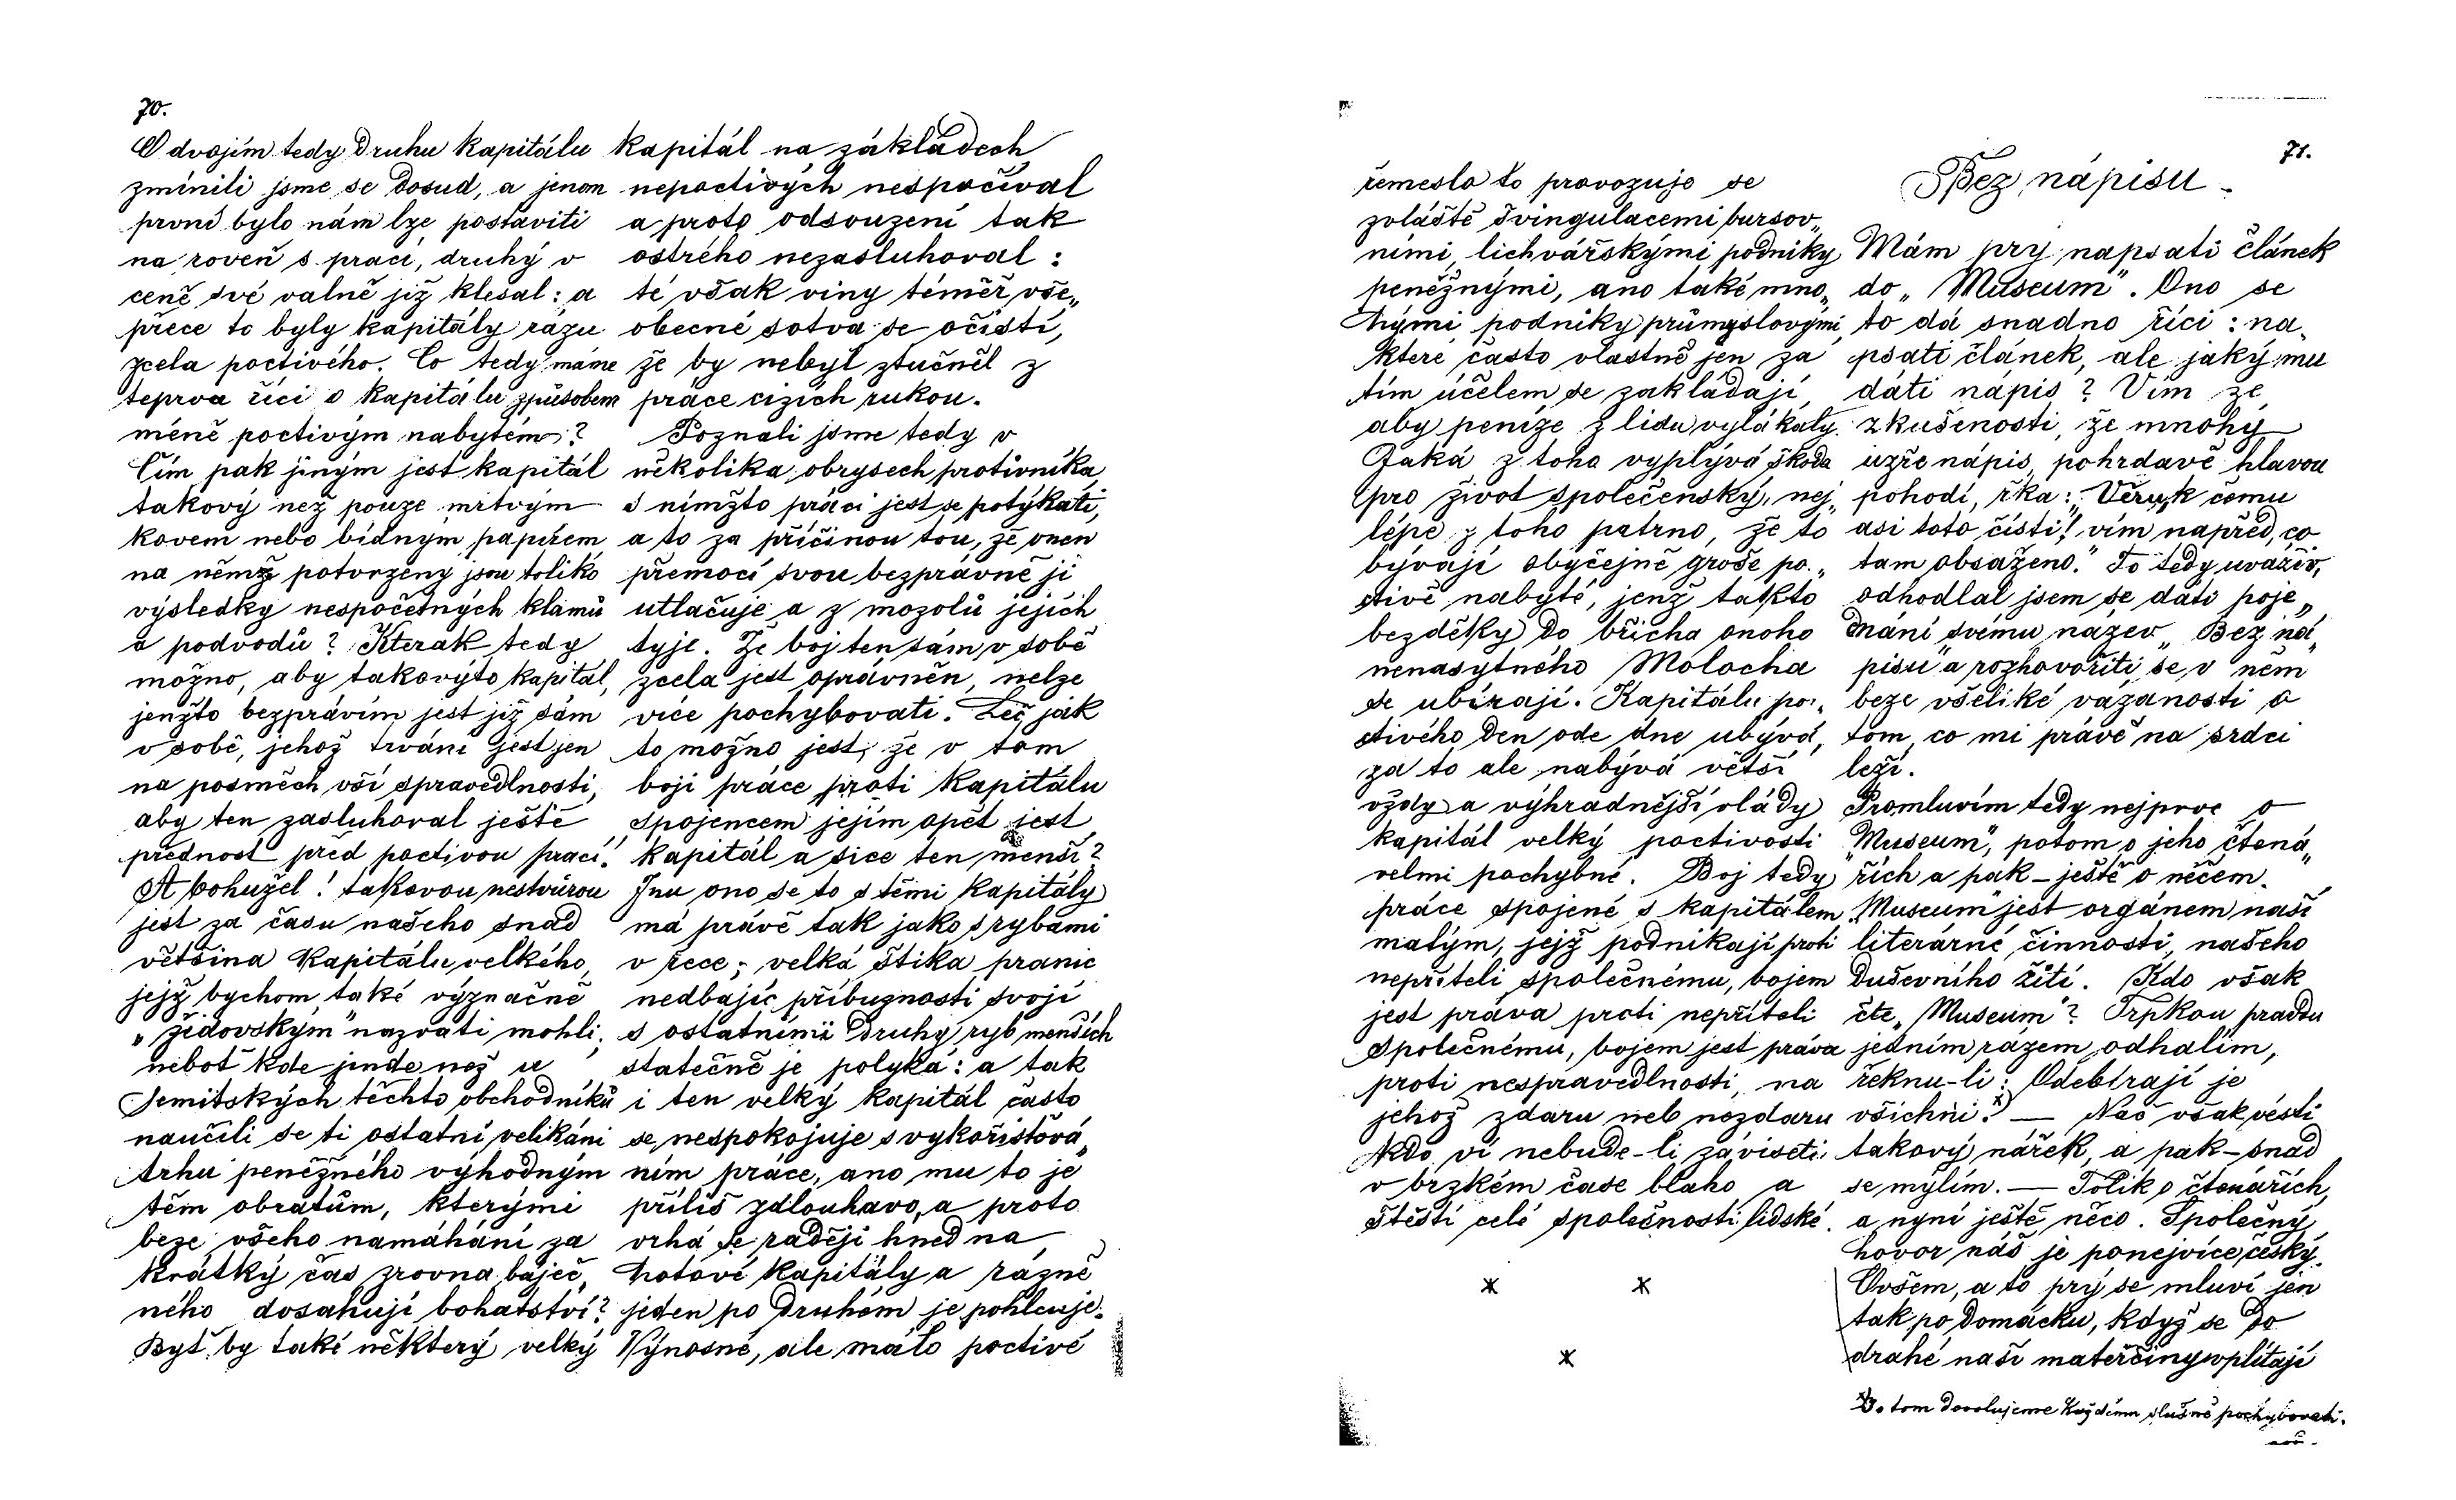 70.
O dvojím tedy druhu kapitálu
zmínili jsme se dosud, a jenom
první bylo nám lze postaviti
na roveň s prací, druhý v
ceně své valně již klesal: a
přece to byly kapitály rázu
zcela poctivého. Co tedy máme
teprva říci o kapitálu způsobem
méně poctivým nabytém?
Čím pak jiným jest kapitál
takový než pouze mrtvým
kovem nebo bídným papírem
na němž potvrzeny jsou toliko
výsledky nespočetných klamů
a podvodů? Kterak tedy
možno, aby takovýto kapitál,
jenžto bezprávím jest již sám
v sobě, jehož trvání jest jen
na posměch vší spravedlnosti,
aby ten zasluhoval ještě
přednost před poctivou prací!
A bohužel! takovou nestvůrou
jest za času našeho snad
většina kapitálu velkého,
jejž bychom také význačně
„židovským" nazvati mohli;
neboť kde jinde než u
semitských těchto obchodníků
naučili se ti ostatní velikáni
trhu peněžného výhodným
těm obratům, kterými
beze všeho namáhání za
krátký čas zrovna báječ„
ného dosahují bohatství?
Byť by také některý velký
kapitál na základech
nepoctivých nespočíval
a proto odsouzení tak
ostrého nezasluhoval:
té však viny téměř vše„
obecné sotva se očistí,
že by nebyl ztučněl z
práce cizích rukou.
Poznali jsme tedy v
několika obrysech protivníka
s nímžto práci jest se potýkati,
a to za příčinou tou, že onen
přemocí svou bezprávně ji
utlačuje a z mozolů jejích
tyje. Že boj ten sám v sobě
zcela jest oprávněn, nelze
více pochybovati. Leč jak
to možno jest, že v tom
boji práce proti kapitálu
spojencem jejím opět jest
kapitál a sice ten menší?
Inu ono se to s těmi kapitály
má právě tak jako s rybami
v řece; velká štika pranic
nedbajíc příbuznosti svojí
s ostatními druhy ryb menších
statečně je polyká: a tak
i ten velký kapitál často
se nespokojuje s vykořisťová„
ním práce, ano mu to je
příliš zdlouhavo, a proto
vrhá se raději hned na
hotové kapitály a rázně
jeden po druhém je pohlcuje.
Výnosné, ale málo poctivé
71.
řemeslo to provozuje se
zvláště švingulacemi bursov„
ními, lichvářskými podniky
peněžnými, ano také mno„
hými podniky průmyslovými,
které často vlastně jen za
tím účelem se zakládají,
aby peníze z lidu vylákaly.
Jaká z toho vyplývá škoda
pro život společenský, nej„
lépe z toho patrno, že to
bývají obyčejně groše po„
ctivě nabyté, jenž takto
bezděky do břicha onoho
nenasytného Molocha
se ubírají. Kapitálu po„
ctivého den ode dne ubývá,
za to ale nabývá větší
vždy a výhradnější vlády
kapitál velký poctivosti
velmi pochybné. Boj tedy
práce spojené s kapitálem
malým, jejž podnikají proti
nepříteli společnému, bojem
jest práva proti nepříteli
společnému, bojem jest práva
proti nespravedlnosti, na
jehož zdaru neb nezdaru
kdo ví nebude-li záviseti
v brzkém čase blaho a
štěstí celé společnosti lidské.
* *
*
Bez nápisu.
Mám prý napsati článek
do „Museum". Ono se
to dá snadno říci: na„
psati článek, ale jaký mu
dáti nápis? Vím ze
zkušenosti, že mnohý
uzře nápis, pohrdavě hlavou
pohodí, řka: „Věru, k čemu
asi toto čísti! vím napřed, co
tam obsaženo." To tedy uváživ,
odhodlal jsem se dáti poje„
dnání svému název „Bez ná„
pisu" a rozhovořiti se v něm
beze všeliké vázanosti o
tom, co mi právě na srdci
leží.
Promluvím tedy nejprve o
„Museum", potom o jeho čtená„
řích a pak – ještě o něčem.
„Museum" jest orgánem naší
literárné činnosti, našeho
duševního žití. Kdo však
čte „Museum"? Trpkou pravdu
jedním rázem odhalím,
řeknu-li: Odebírají je
všichni.*) — Nač však vésti
takový nářek, a pak – snad
se mýlím. — Tolik o čtenářích,
a nyní ještě něco. Společný
hovor náš je ponejvíce český.
Ovšem, a to prý se mluví jen
tak po domácku, když se do
drahé naší mateřčiny vplítají
*) O tom dovolujeme každému slušně pochybovati.